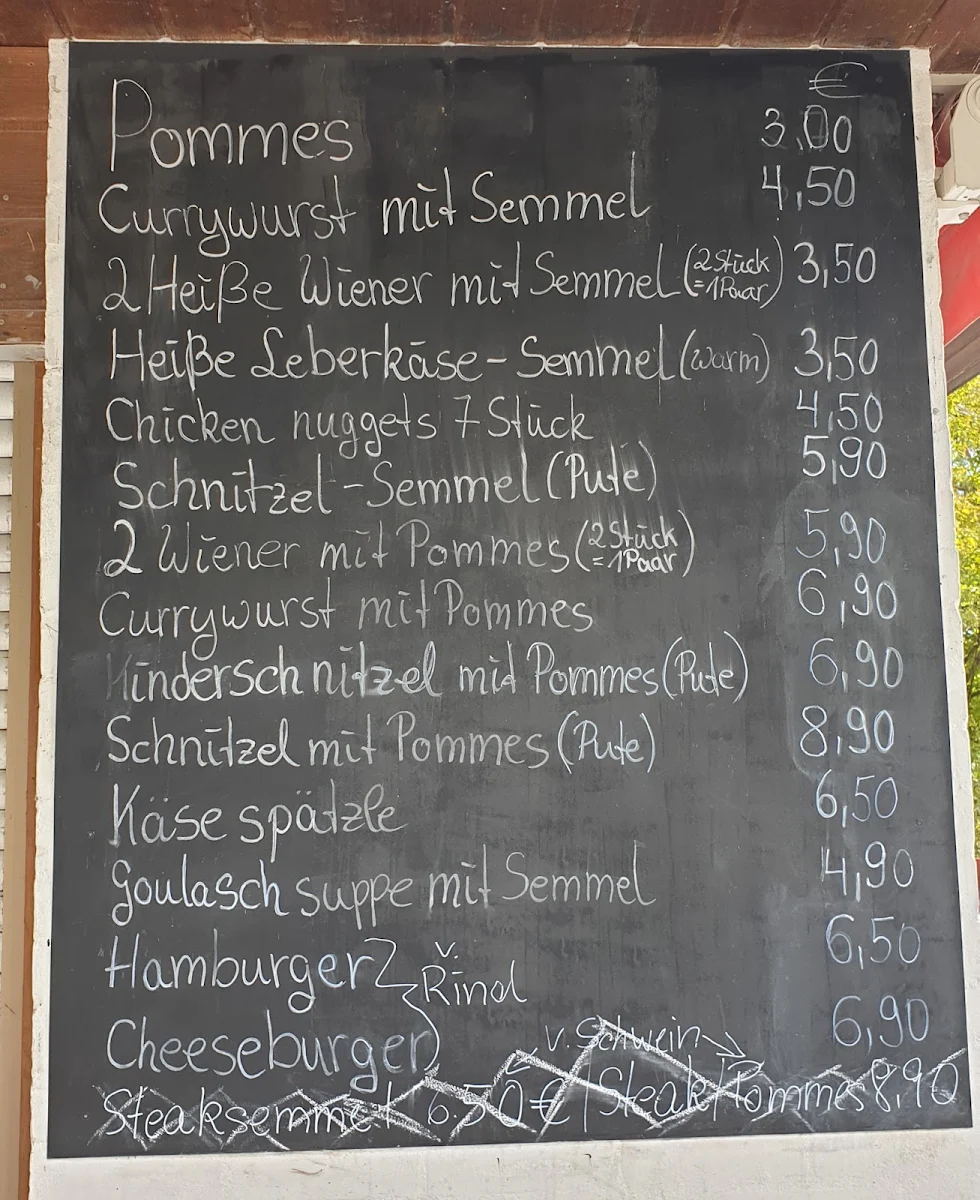 €
Pommes 3.00
Currywurst mit Semmel 4,50
2 Heiße Wiener mit Semmel (2 Stück = 1 Paar) 3,50
Heiße Leberkäse-Semmel (warm) 3,50
Chicken nuggets 7 Stück 4,50
Schnitzel-Semmel (Pute) 5,90
2 Wiener mit Pommes (2 Stück = 1 Paar) 5,90
Currywurst mit Pommes 6,90
Kinderschnitzel mit Pommes (Pute) 6,90
Schnitzel mit Pommes (Pute) 8,90
Käse spätzle 6,50
Goulasch suppe mit Semmel 4,90
Hamburger 6,50
v. Rind
Cheeseburger 6,90
v. Schwein
Steaksemmel 6.50 € | Steak Pommes 8,90